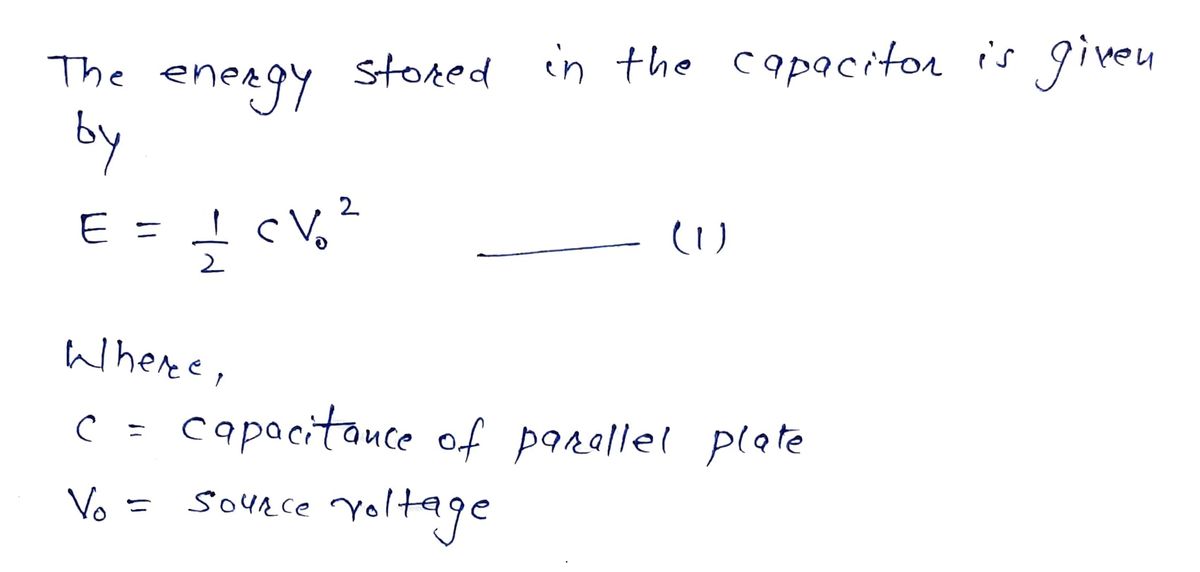 The energy stored in the capacitor is given
by
E = 1/2 CV₀² ——— (1)
Where,
C = capacitance of parallel plate
V₀ = source voltage